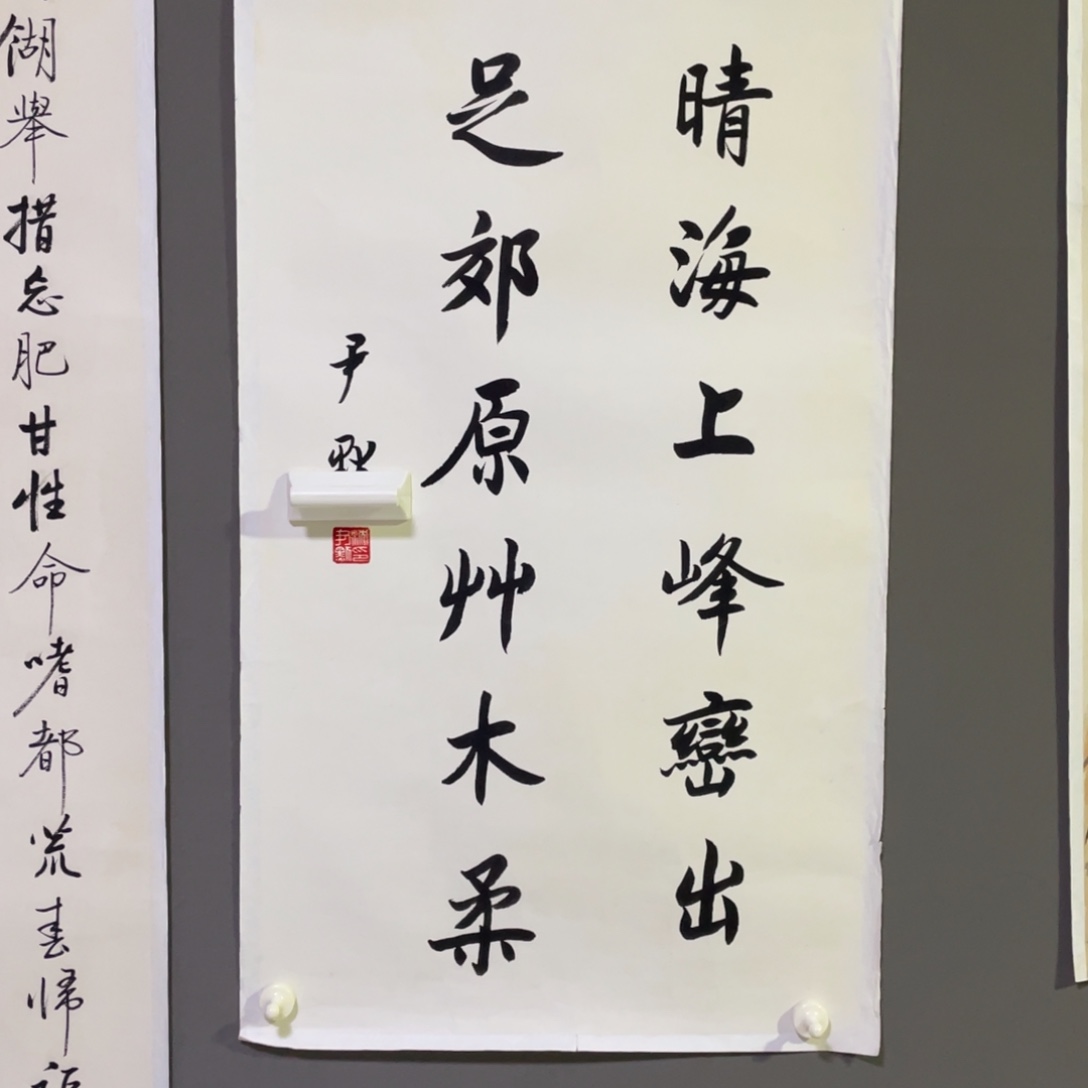 晴海上峰巒出
足郊原艸木柔
尹
餬舉措忘肥甘性命嗜都荒春帰